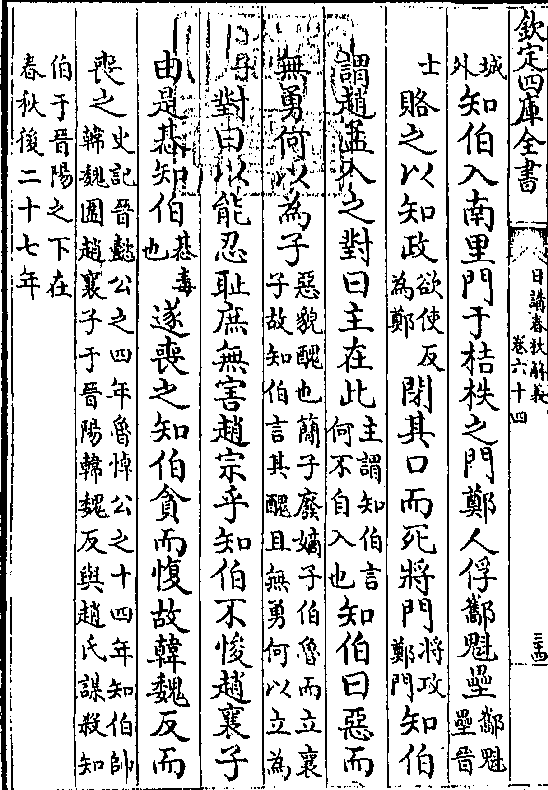 欽定四庫全書
日講春秋解義
卷六十四
三十四
城外知伯入南里門于桔柣之門鄭人俘酅魁壘酅魁壘晉
士賂之以知政欲使反為鄭閉其口而死將門將攻鄭門知伯
謂趙孟入之對曰主在此主謂知伯言何不自入也知伯曰惡而
無勇何以為子惡貌醜也簡子廢嫡子伯魯而立襄子故知伯言其醜且無勇何以立為
子對曰以能忍恥庶無害趙宗乎知伯不悛趙襄子
由是惎知伯惎毒也遂喪之知伯貪而愎故韓魏反而
喪之史記晉懿公之四年魯悼公之十四年知伯帥韓魏圍趙襄子于晉陽韓魏反與趙氏謀殺知
伯于晉陽之下在春秋後二十七年